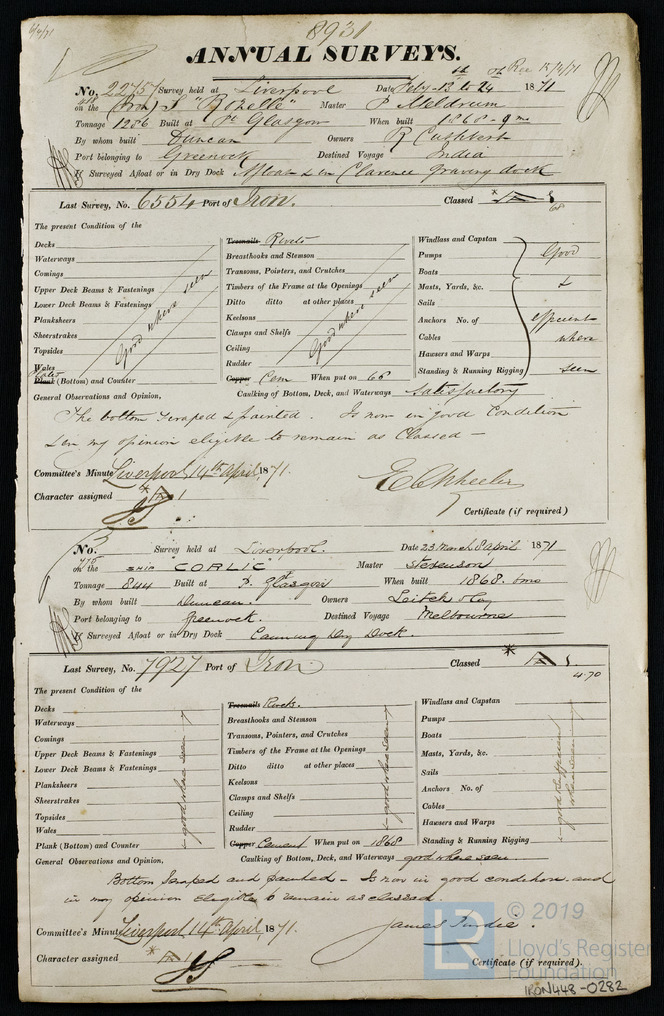 8931
ANNUAL SURVEYS.
Rec 15/4/71
No. 22757 Survey held at Liverpool Date Feby 13th to 24th 1871
on the Iron S "Rozelle" Master P Meldrum
Tonnage 1286 Built at Pt Glasgow When built 1868 - 9 mo
By whom built Duncan Owners R Cuthbert
Port belonging to Greenock Destined Voyage India
If Surveyed Afloat or in Dry Dock Afloat & in Clarence graving dock
Last Survey, No. 6554 Port of Iron. Classed * A 1
68
The present Condition of the
Decks
Waterways
Comings
Upper Deck Beams & Fastenings
Lower Deck Beams & Fastenings
Planksheers
Sheerstrakes
Topsides
Wales
Plates
Plank (Bottom) and Counter
Good where seen
Treenails Rivets
Breasthooks and Stemson
Transoms, Pointers, and Crutches
Timbers of the Frame at the Openings
Ditto ditto at other places
Keelsons
Clamps and Shelfs
Ceiling
Rudder
Good where seen
Copper Cem When put on 68
Windlass and Capstan
Pumps
Boats
Masts, Yards, &c.
Sails
Anchors No. of
Cables
Hawsers and Warps
Standing & Running Rigging
Good
&
efficient
where
seen
General Observations and Opinion, Caulking of Bottom, Deck, and Waterways Satisfactory
The bottom scraped & painted. Is now in good Condition
& in my opinion eligible to remain as Classed -
Committee's Minute Liverpool, 14th April, 1871.
E C Wheeler
Character assigned * A 1
Certificate (if required)
No. Survey held at Liverpool. Date 23 March 8 April 1871
on the SHIP CORLIC Master Stevenson
Tonnage 844 Built at P. Glasgow When built 1868. 8mo
By whom built Duncan. Owners Leitch & Co
Port belonging to Greenock Destined Voyage Melbourne
If Surveyed Afloat or in Dry Dock Canning Dry Dock.
Last Survey, No. 7927 Port of Iron. Classed * A 1
4.70
The present Condition of the
Decks
Waterways
Comings
Upper Deck Beams & Fastenings
Lower Deck Beams & Fastenings
Planksheers
Sheerstrakes
Topsides
Wales
Plank (Bottom) and Counter
good where seen
Treenails Rivets.
Breasthooks and Stemson
Transoms, Pointers, and Crutches
Timbers of the Frame at the Openings
Ditto ditto at other places
Keelsons
Clamps and Shelfs
Ceiling
Rudder
good where seen
Copper Cement When put on 1868
Windlass and Capstan
Pumps
Boats
Masts, Yards, &c.
Sails
Anchors No. of
Cables
Hawsers and Warps
Standing & Running Rigging
good & efficient
where seen
General Observations and Opinion, Caulking of Bottom, Deck, and Waterways good where seen
Bottom Scraped and painted - Is now in good condition and
in my opinion Eligible to remain as classed.
Committee's Minute Liverpool, 14th April, 1871.
James
Character assigned * A 1
Certificate (if required).
LR
© 2019
Lloyd's Register
Foundation
IRON448-0282